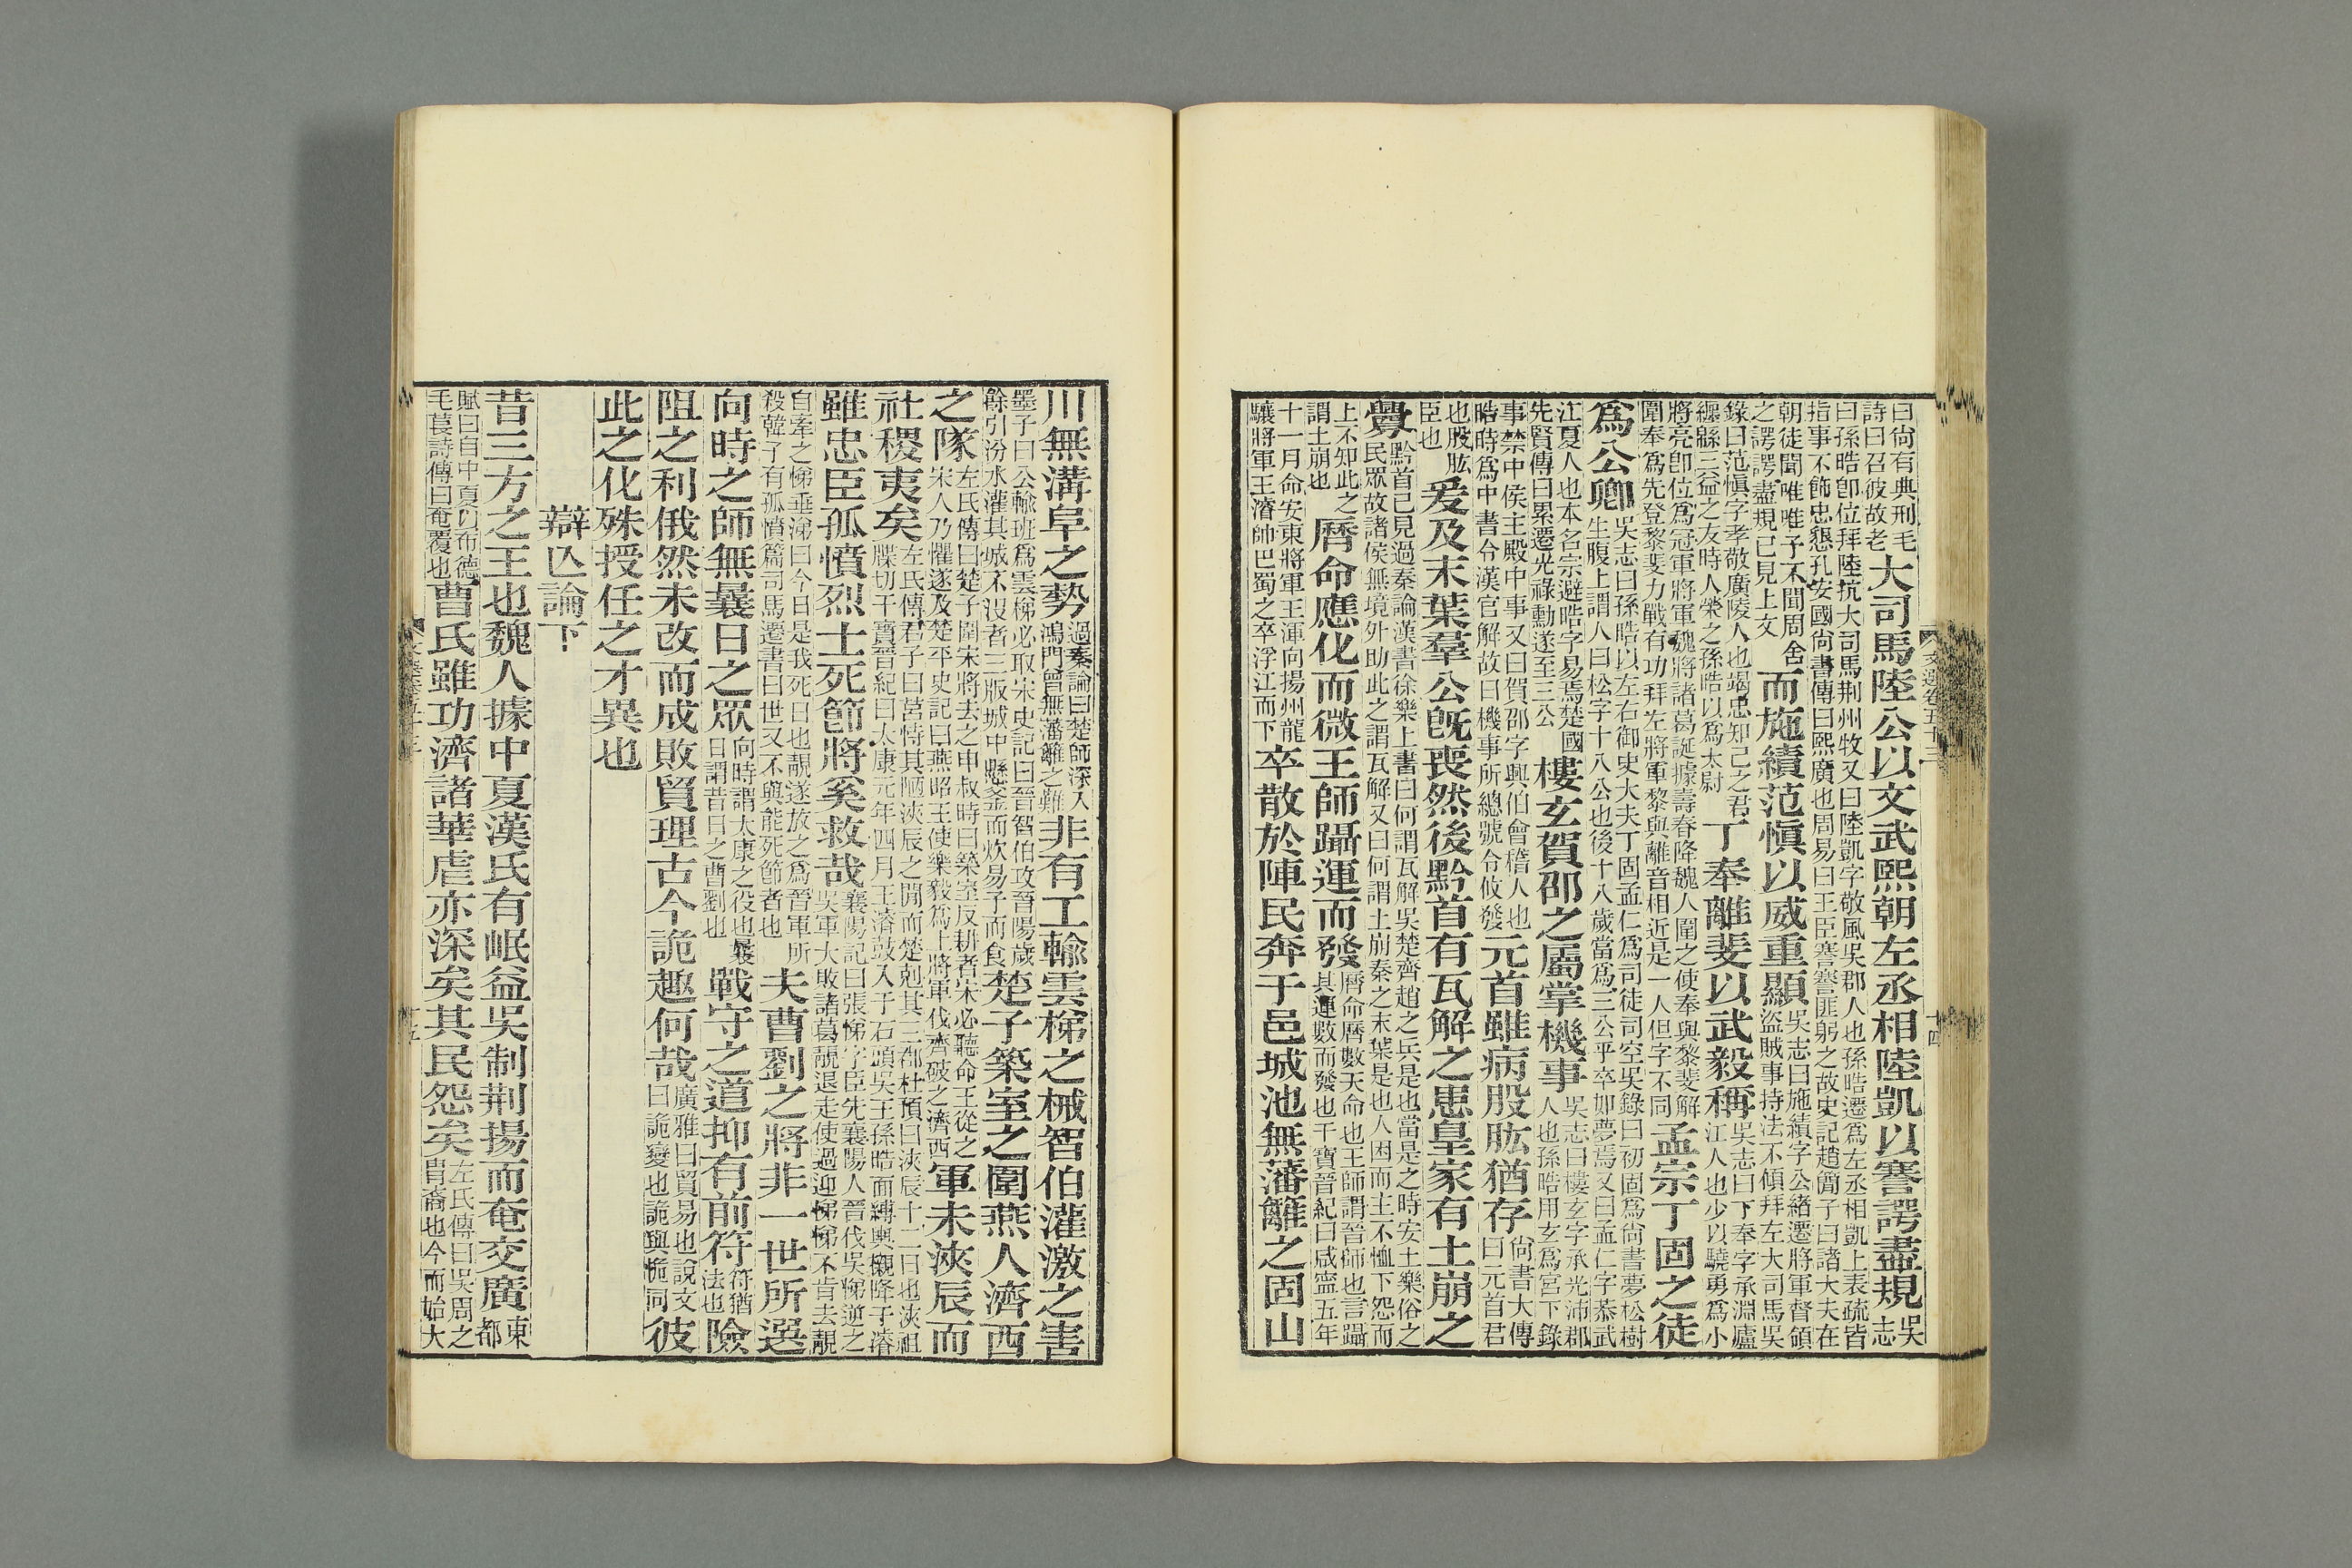 曰尚有典刑毛詩曰召彼故老大司馬陸公以文武熙朝左丞相陸凱以謇諤盡規吳志
曰孫晧卽位拜陸抗大司馬荆州牧又曰陸凱字敬風吳郡人也孫晧遷爲左丞相凱上表疏皆指事不飾忠懇孔安國尚書傳曰熙廣也周易曰王臣謇謇匪躬之故史記趙簡子曰諸大夫在
朝徒聞唯唯子不聞周舍之諤諤盡規已見上文而施績范愼以威重顯吳志曰施績字公緒遷將軍督領盜賊事持法不傾拜左大司馬吳
錄曰范愼字孝敬廣陵人也竭忠知己之君纒緜三益之友時人榮之孫晧以爲太尉丁奉離斐以武毅稱吳志曰丁奉字承淵廬江人也少以驍勇爲小
將亮卽位爲冠軍將軍魏將諸葛誕據壽春降魏人圍之使奉與黎斐解圍奉爲先登黎斐力戰有功拜左將軍黎與離音相近是一人但字不同孟宗丁固之徒
爲公卿吳志曰孫晧以左右御史大夫丁固孟仁爲司徒司空吳錄曰初固爲尚書夢松樹生腹上謂人曰松字十八公也後十八歲當爲三公乎卒如夢焉又曰孟仁字恭武
江夏人也本名宗避晧字易焉楚國先賢傳曰累遷光祿勳遂至三公樓玄賀邵之屬掌機事吳志曰樓玄字承光沛郡人也孫晧用玄爲宮下錄
事禁中侯主殿中事又曰賀邵字興伯會稽人也晧時爲中書令漢官解故曰機事所總號令攸發元首雖病股肱猶存尚書大傳曰元首君
也股肱臣也爰及末葉羣公旣喪然後黔首有瓦解之患皇家有土崩之
釁黔首已見過秦論漢書徐樂上書曰何謂瓦解吳楚齊趙之兵是也當是之時安土樂俗之民眾故諸侯無境外助此之謂瓦解又曰何謂土崩秦之末葉是也人困而主不恤下怨而
上不知此之謂土崩也厤命應化而微王師躡運而發厤命厤數天命也王師謂晉師也言躡其運數而發也干寶晉紀曰咸寧五年
十一月命安東將軍王渾向揚州龍驤將軍王濬帥巴蜀之卒浮江而下卒散於陣民奔于邑城池無藩籬之固山
川無溝阜之勢過秦論曰楚師深入鴻門曾無藩籬之難非有工輸雲梯之械智伯灌激之害
墨子曰公輸班爲雲梯必取宋史記曰晉智伯攻晉陽歲餘引汾水灌其城不沒者三版城中懸釜而炊易子而食楚子築室之圍燕人濟西
之隊左氏傳曰楚子圍宋將去之申叔時曰築室反耕者宋必聽命王從之宋人乃懼遂及楚平史記曰燕昭王使樂毅爲上將軍伐齊破之濟西軍未浹辰而
社稷夷矣左氏傳君子曰莒恃其陋浹辰之閒而楚剋其三都杜預曰浹辰十二日也浹祖牒切干寶晉紀曰太康元年四月王濬鼓入于石頭吳王孫晧面縛輿櫬降于濬
雖忠臣孤憤烈士死節將奚救哉襄陽記曰張悌字臣先襄陽人晉伐吳悌逆之吳軍大敗諸葛靚退走使過迎悌悌不肯去靚
自牽之悌垂涕曰今日是我死日也靚遂放之爲晉軍所殺韓子有孤憤篇司馬遷書曰世又不與能死節者也夫曹劉之將非一世所選
向時之師無曩日之眾向時謂太康之役也曩日謂昔日之曹劉也戰守之道抑有前符符猶法也險
阻之利俄然未改而成敗貿理古今詭趣何哉廣雅曰貿易也說文曰詭變也詭與恑同彼
此之化殊授任之才異也
辯亾論下
昔三方之王也魏人據中夏漢氏有岷益吳制荆揚而奄交廣東都
賦曰自中夏以布德毛萇詩傳曰奄覆也曹氏雖功濟諸華虐亦深矣其民怨矣左氏傳曰吳周之胄裔也今而始大
文選卷五十三
十四
十五